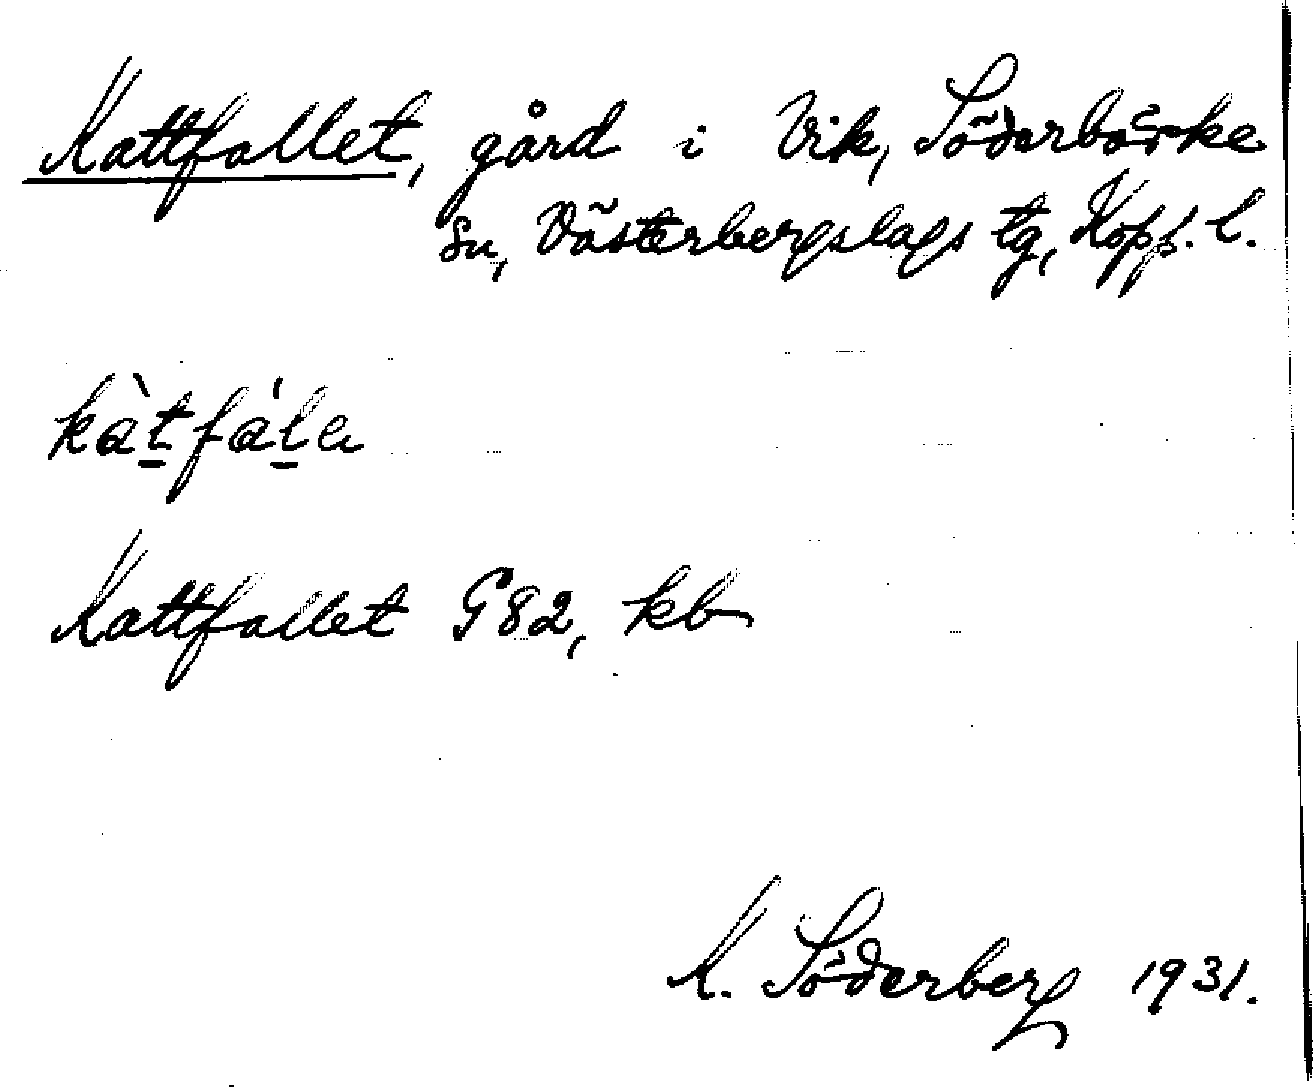 Kattfallet, gård i Vik, Söderbärke
sn, Västerbergslags tg, Kopp. l.
kàt̲fál̲a
Kattfallet G 82, kb
K. Söderberg 1931.